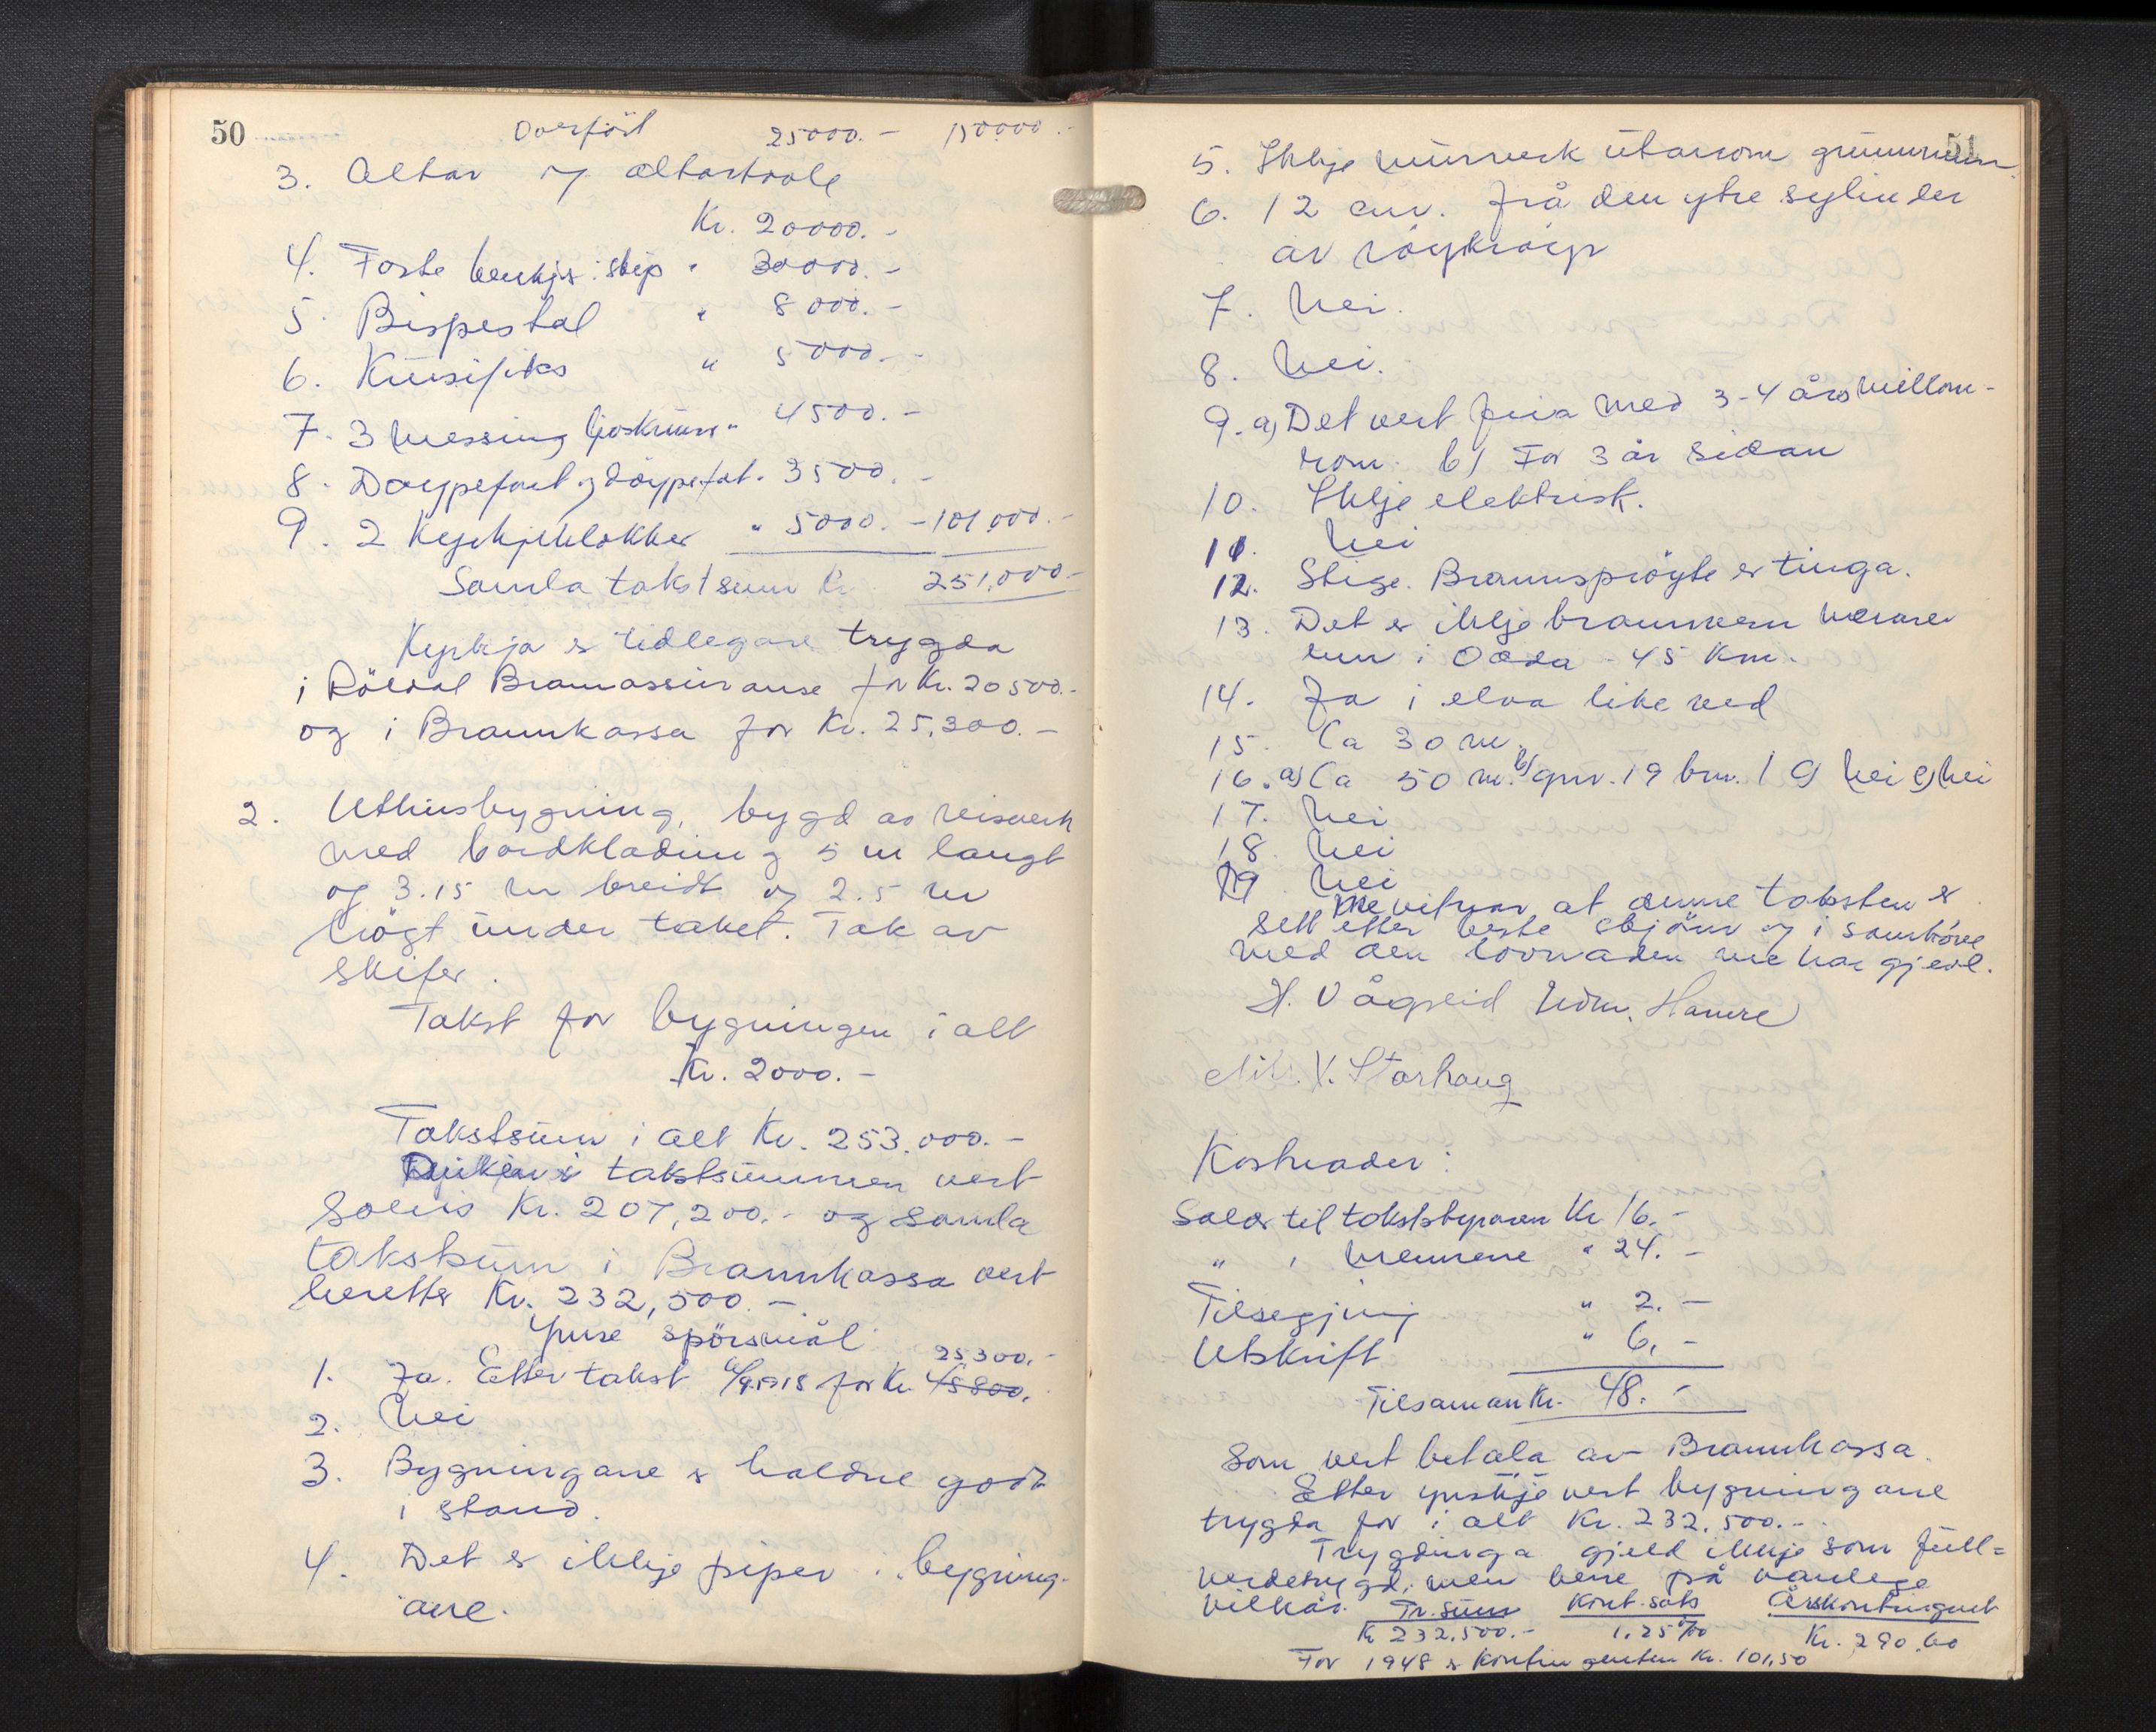 50
Overført 25000.- 150000.-
3. Altar og altartavle
Kr. 20000.-
4. Faste benkjer i skip " 30000.-
5. Bispestol " 8000.-
6. Krusifiks " 5000.-
7. 3 messing ljoskruner " 4500.-
8. Døypefont og døypefat " 3500.-
9. 2 Kyrkjeklokker " 5000.- 101.000.-
Samla takstsum Kr. 251.000.-
Kyrkja er tidlegare trygda
i Röldal Brannassuranse for Kr. 20500.-
og i Brannkassa for Kr. 25,300.-
2. Uthusbygning, bygd av reisverk
med bordkledning 5 m langt
og 3.15 m breidt og 2.5 m
högt under taket. Tak av
skifer.
Takst for bygningen i alt
Kr. 2000.-
Takstsum i alt Kr. 253.000.-
takstsummen vert
soleis Kr. 207,200.- og samla
takstsum i Brannkassa vert
heretter Kr. 232,500.-
Ymse spörsmål
25,300.-
1. Ja. Etter takst 1918 for Kr. 45800.
2. Nei
3. Bygningane er haldne godt
i stand.
4. Det er ikkje piper i bygning-
ane.
51
5. Ikkje murverk utanom grunnmur.
6. 12 cm. frå den ytre sylinder
av röykröyr
7. Nei.
8. Nei.
9. a) Det vert feia med 3-4 års millom-
rom. b) For 3 år sidan
10. Ikkje elektrisk.
11. Nei
12. Stige. Brannspröyte er tinga.
13. Det er ikkje brannvern nærare
enn i Odda - 45 Km.
14. Ja i elva like ved
15. Ca 30 m.
16. a) Ca 50 m. b) gnr. 19 bnr. 1 c) Nei e) Nei
17. Nei
18. Nei
19 Nei
Me vitnar at denne taksten er
sett etter beste skjönn og i samhöve
med den lovnaden me har gjeve.
H. Vågseid Edm. Hamre
Nils V. Storhaug
Kostnader:
Salær til takststyraren Kr 16.-
" " mennene " 24.-
Tilsegjing " 2.-
Utskrift " 6.-
Tilsaman Kr. 48.-
Som vert betala av Brannkassa.
Etter ynskje vert bygningane
trygda for i alt Kr. 232.500.-
Trygdinga gjeld ikkje som full=
verdetrygd, men berre på vanlege
vilkår. Tr.sum Kont.sats Årskontingent
Kr 232.500.- 1.25‰ Kr. 290.60
For 1948 er kontingenten Kr. 101,50